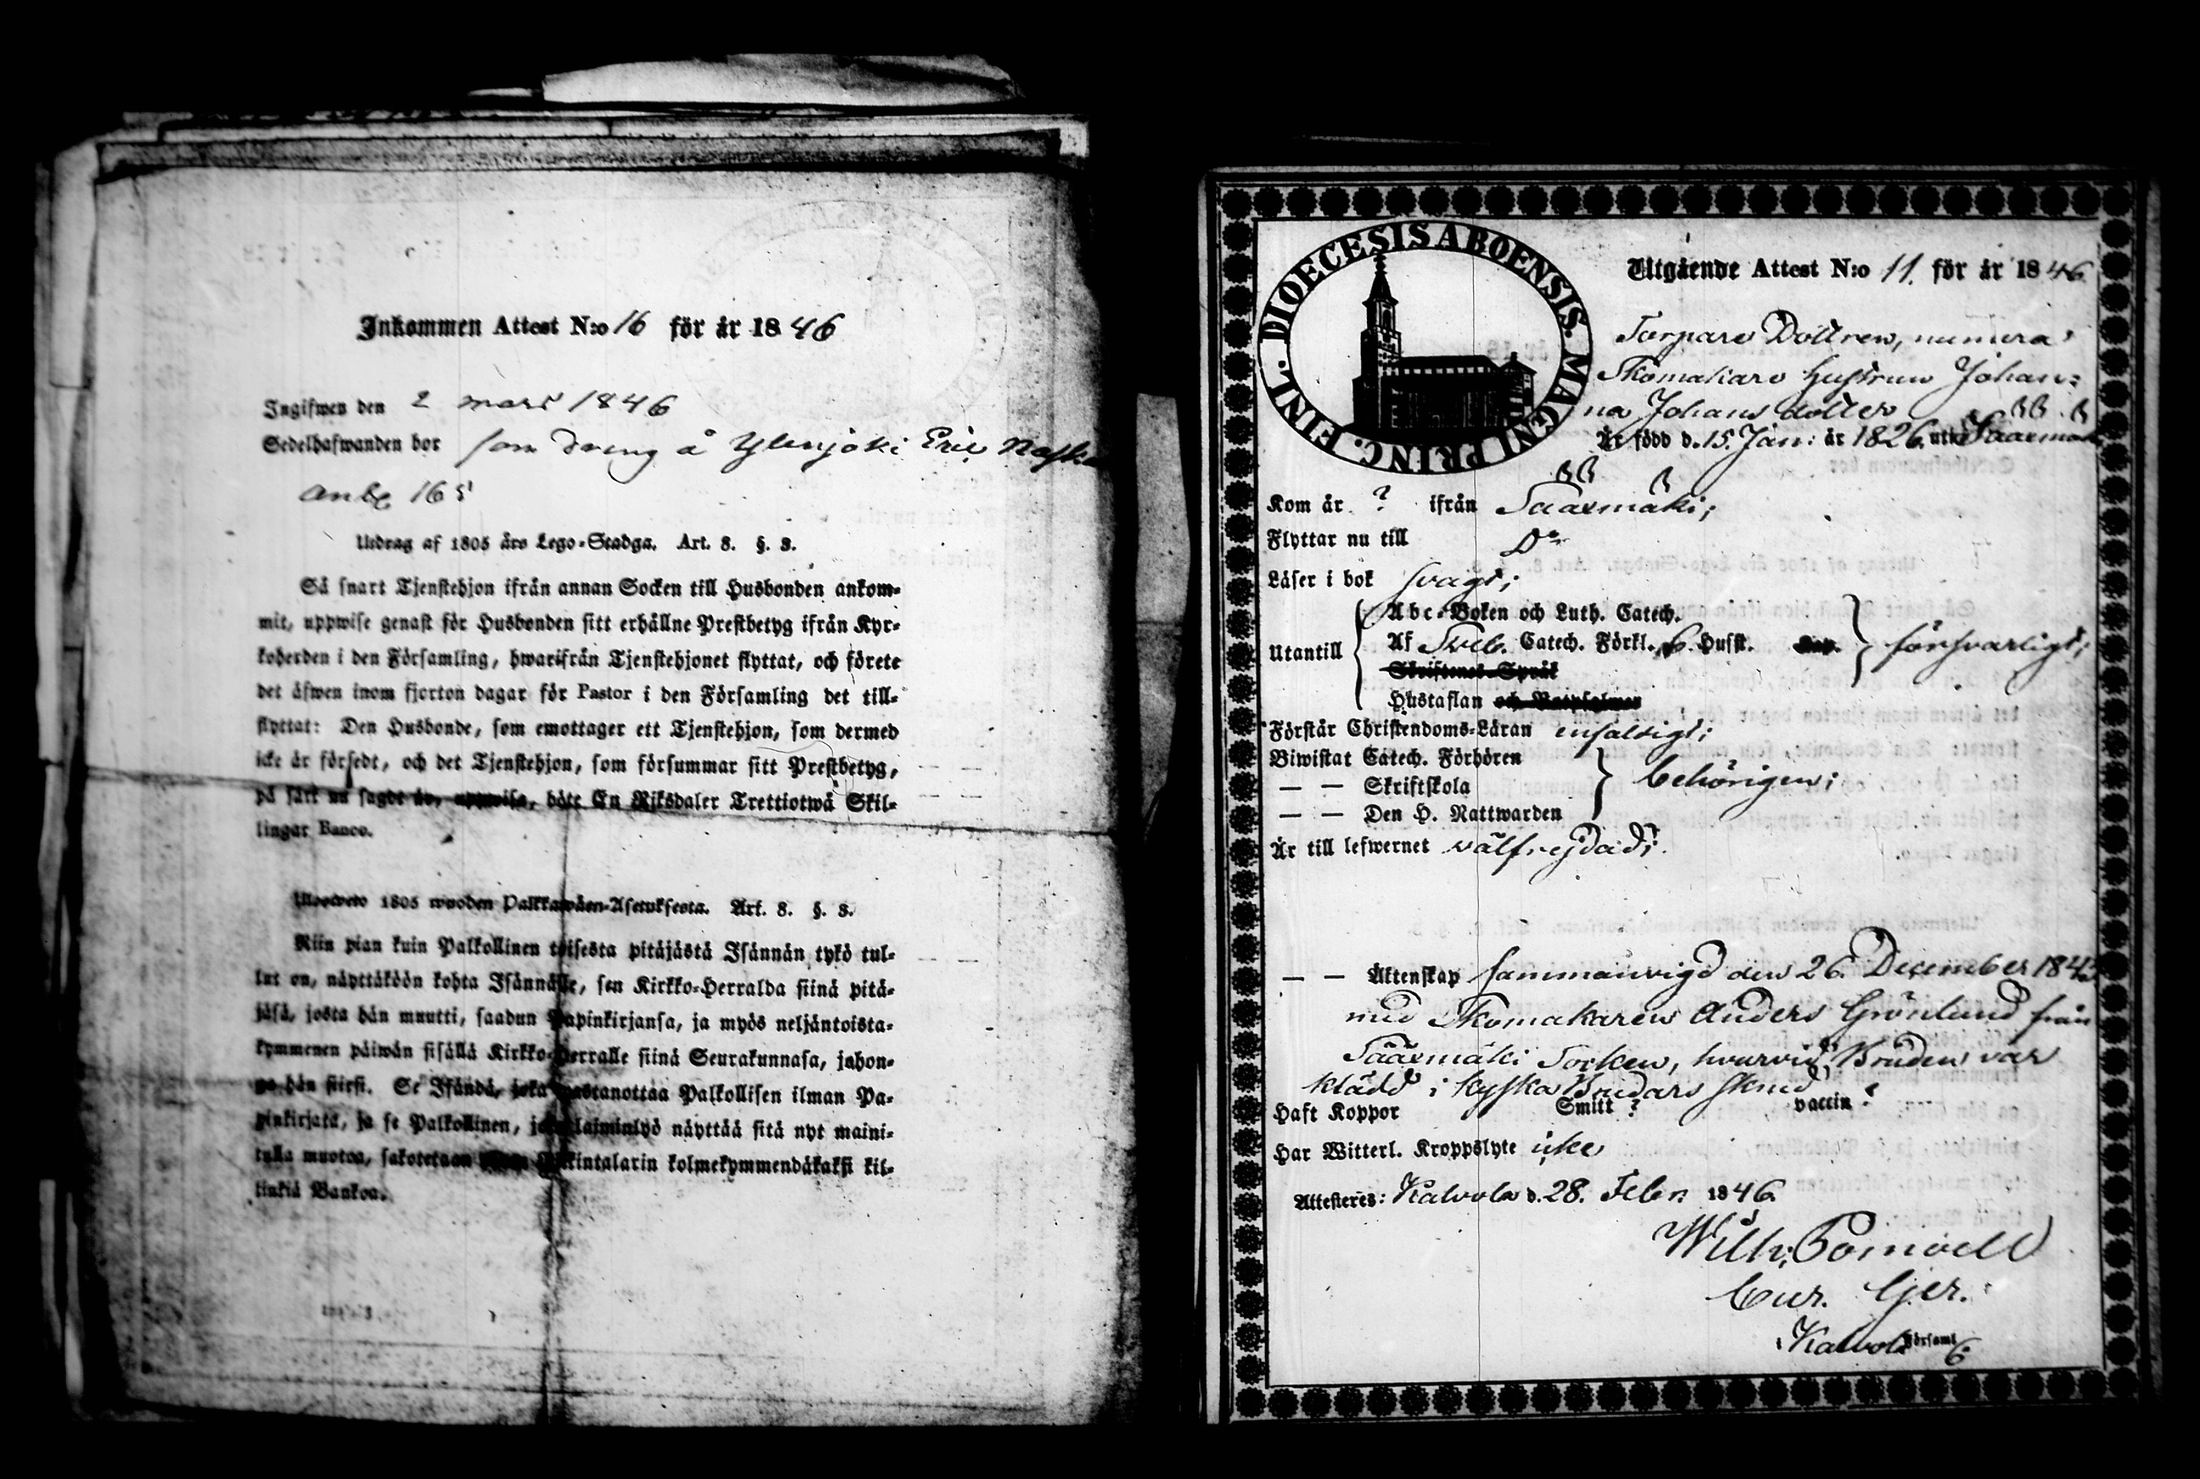 Inkommen Attest N:o 16 för år 1846
Ingifwen den 2 mars 1846
Sedelhafwanden bor som dreng å Ylenjoki Eric
165
Utdrag af 1805 års Lego-Stadga. Art. 8. §. 3.
Så snart Tjenstehjon ifrån annan Socken till Husbonden ankom-
mit, uppwise genast för Husbonden sitt erhållne Prestbetyg ifrån Kyr-
koherden i den Församling, hwarifrån Tjenstehjonet flyttat, och förete
det äfwen inom fjorton dagar för Pastor i den Församling det till-
flyttat: Den Husbonde, som emottager ett Tjenstehjon, som dermed
icke är försedt, och det Tjenstehjon, som försummar sitt Prestbetyg,
på sätt nu sagdt är, uppwisa, böte En Riksdaler Trettiotwå Skil-
lingar Banco.
Ulosweto 1805 wuoden Palkkawäen-Asetuksesta. Art. 8. §. 3.
Niin pian kuin Palkollinen toisesta pitäjästä Isännän tykö tul-
lut on, näyttäköön kohta Isännälle, sen Kirkko-Herralda siinä pitä-
jäsä, josta hän muutti, saadun Papinkirjansa, ja myös neljäntoista-
kymmenen päiwän sisällä Kirkko-Herralle siinä Seurakunnasa, johon-
ga hän siirsi. Se Isändä, joka wastanottaa Palkollisen ilman Pa-
pinkirjatä, ja se Palkollinen, joka laiminlyö näyttää sitä nyt maini-
tulla muotoa, sakotetaan kolmekymmendäkaksi kil-
linkiä Bankoa.
DIOECESIS ABOENSIS. MAGNI PRINC. FINL.
Utgående Attest N:o 11. för år 1846
Torpare Dottren, numera
Skomakare Hustrun Johan-
na Johans dotter
Är född d. 15. Jan: år 1826. uti Sääxmäki
Kom år ? ifrån Sääxmäki;
Flyttar nu till Do
Läser i bok svagt;
Utantill Abc-Boken och Luth. Catech.
Af Sveb. Catech. Förkl. Husst. försvarligt;
Skriftenes Språk
Hustaflan och Botpsalmer
Förstår Christendoms-Läran enfaldigt;
Biwistat Catech. Förhören
— — Skriftskola behörigen;
— — Den H. Nattwarden
Är till lefwernet välfrejdad;
— — Äktenskap sammanvigd den 26. December 1845
med Skomakaren Anders Grönlund från
Sääxmäki Socken, hvarvid Bruden var
klädd i kyska Brudars skrud
Haft Koppor Smitt ? vaccin ?
Har Witterl. Kroppslyte icke
Attesteres: Kalvola d. 28. Febr. 1846
Wilh. Pomoell
Cur. Ger.
i Kalvola Församl